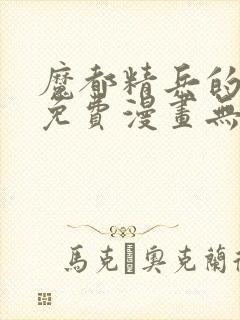 魔都精兵的
免費漫畫無
馬克 奧克蘭